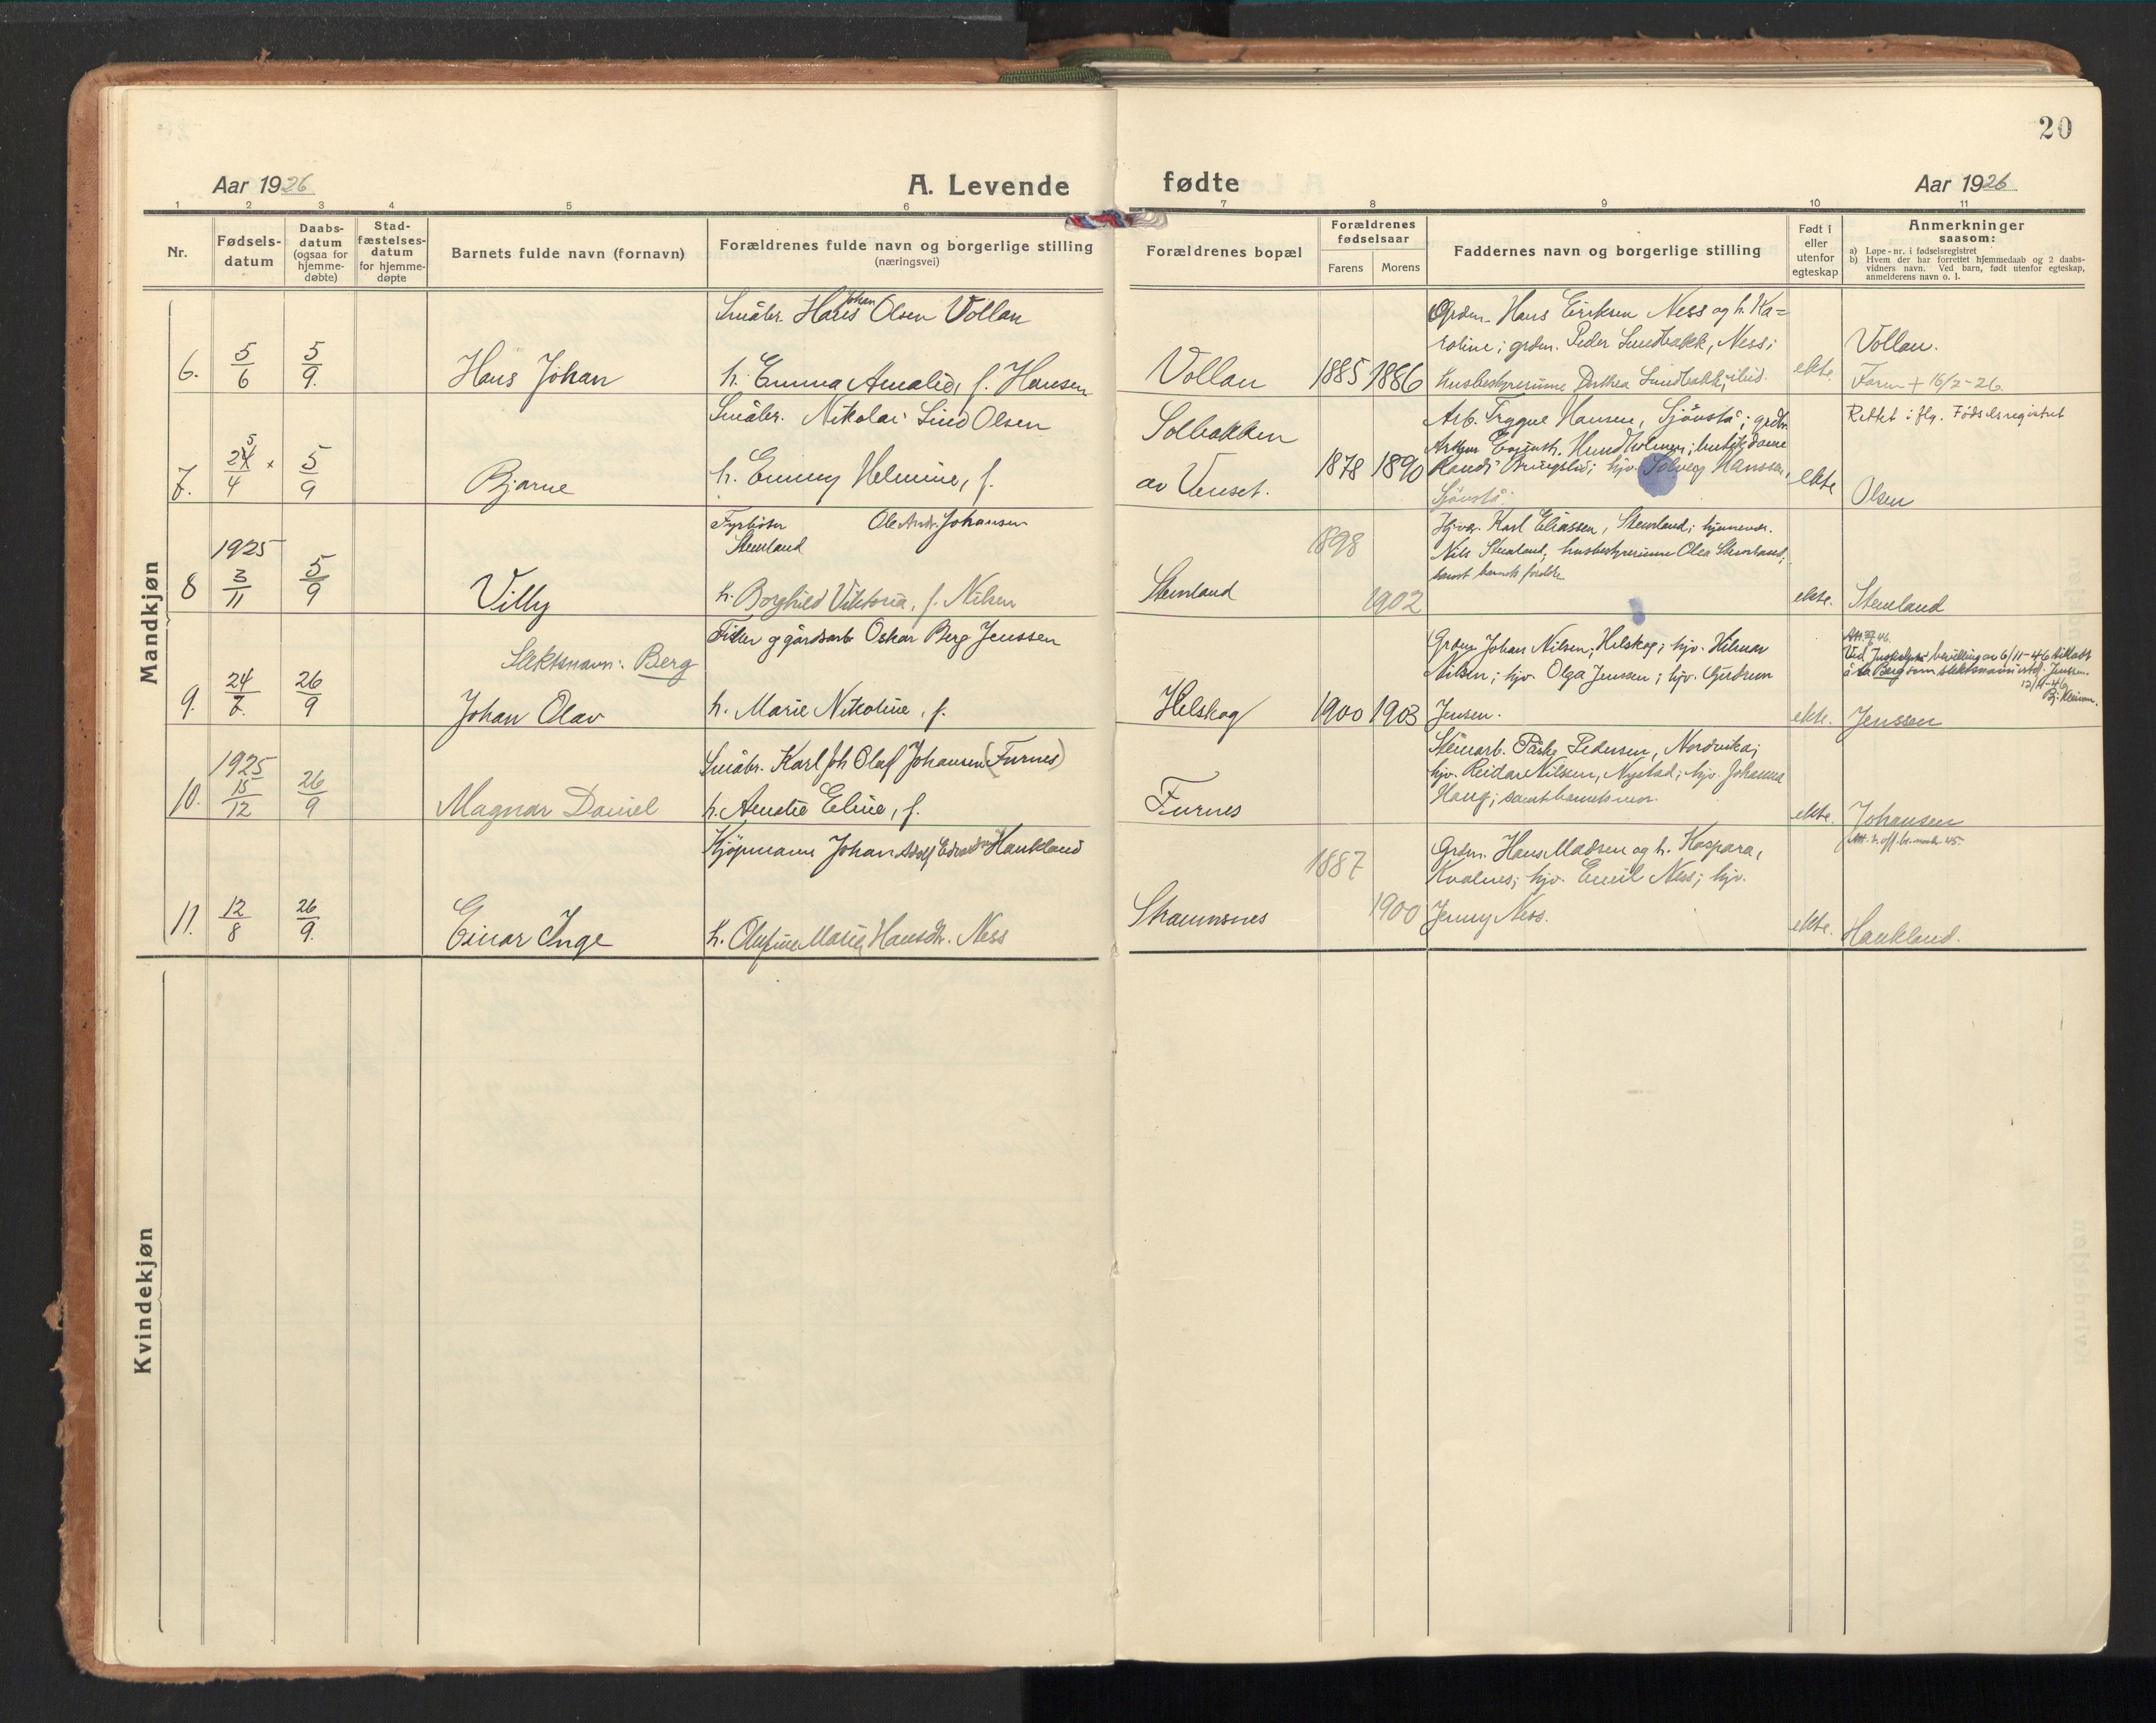 20
Aar 1926 A. Levende fødte Aar 1926
1 2 3 4 5 6 7 8 9 10 11
Nr.
Fødsels-
datum
Daabs-
datum
(ogsaa for
hjemme-
døbte)
Stad-
fæstelses-
datum
for hjemme-
døpte
Barnets fulde navn (fornavn)
Forældrenes fulde navn og borgerlige stilling
(næringsvei)
Forældrenes bopæl
Forældrenes
fødselsaar
Farens Morens
Faddernes navn og borgerlige stilling
Født i
eller
utenfor
egteskap
Anmerkninger
saasom:
a) Løpe-nr. i fødselsregistret
b) Hvem der har forrettet hjemmedaab og 2 daabs-
vidners navn. Ved barn, født utenfor egteskap,
anmelderens navn o. l.
Mandkjøn
6. 5/6 5/9.
Hans Johan
Småbr. Hans Johan Olsen Vollan
h. Emma Amalie, f. Hansen
Vollan 1885 1886
Grdm. Hans Eriksen Ness og h. Ka=
roline; grdm. Peder Lundbakk, Ness;
husbestyrerinne Dorthea Lundbakk, ibid.
ekte.
Vollan.
Faren + 16/2-26
7. 24/4 5 x 5/9
Bjarne
Småbr. Nikolai Lind Olsen
h. Emmy Helmine, f.
Solbakken
av Venset.
1878 1890
Arb. Trygve Hansen, Sjönstå; grdbr.
Hundholmen;
Randi hjv. Solveig Hanssen,
Sjönstå.
ekte
Rettet i flg. Fødselsregistret
Olsen
8 1925 3/11 5/9
Villy
Fyrbøter Ole Andr. Johansen
Stemland
h. Borghild Viktoria, f. Nilsen
Stemland
1898
1902
Hjv. Karl Eliassen, Stemland;
Nils Stemland; husbestyrerinne Olea Stemland;
samt barnets foreldre
ekte.
Stemland
9. 24/7. 26/9
Slektsnavn: Berg
Johan Olav
Fisker og gårdsarb Oskar Berg Jenssen
h. Marie Nikoline, f.
Helskog 1900 1903
Grdm. Johan Nilsen, Helskog; hjv. Hilmar
Nilsen; hjv. Olga Jenssen; hjv. Gudrun
Jensen.
ekte.
Ved bevilling av 6/11-46 tillatt
å ta Berg som slektsnavn istf. Jenssen.
12/11-46
Jenssen
10. 1925 15/12 26/9
Magnar Daniel
Småbr. Karl Joh Olaf Johansen (Furnes)
h. Amalie Eline, f.
Furnes
Steinarb. Pedersen, Nordvika;
hjv. Reidar Nilsen, Nystad; hjv. Johanna
Haug; samt barnets mor.
ekte.
Johansen
11. 12/8 26/9.
Einar Inge
Kjøpmann Johan Adolf Haukland
h. Olufine Marie Hansdtr. Ness
Straumsnes
1887
1900
Grdm. Hans Madsen og h. Kaspara,
Kvalnes; hjv. Emil Ness; hjv.
Jenny Ness.
ekte.
Haukland.
Kvindekjøn